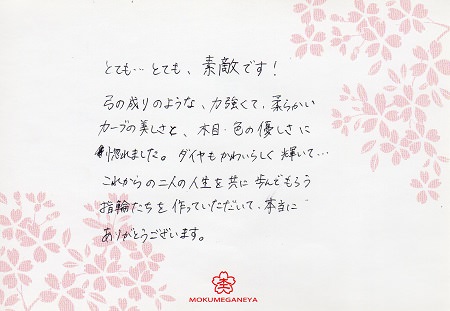 とても…とても、素敵です！
弓の成りのような、力強くて、柔らかい
カーブの美しさと、木目・色の優しさに
惚れました。ダイヤもかわいらしく輝いて…
これからの二人の人生を共に歩んでもらう
指輪たちを作っていただいて、本当に
ありがとうございます。
MOKUMEGANEYA